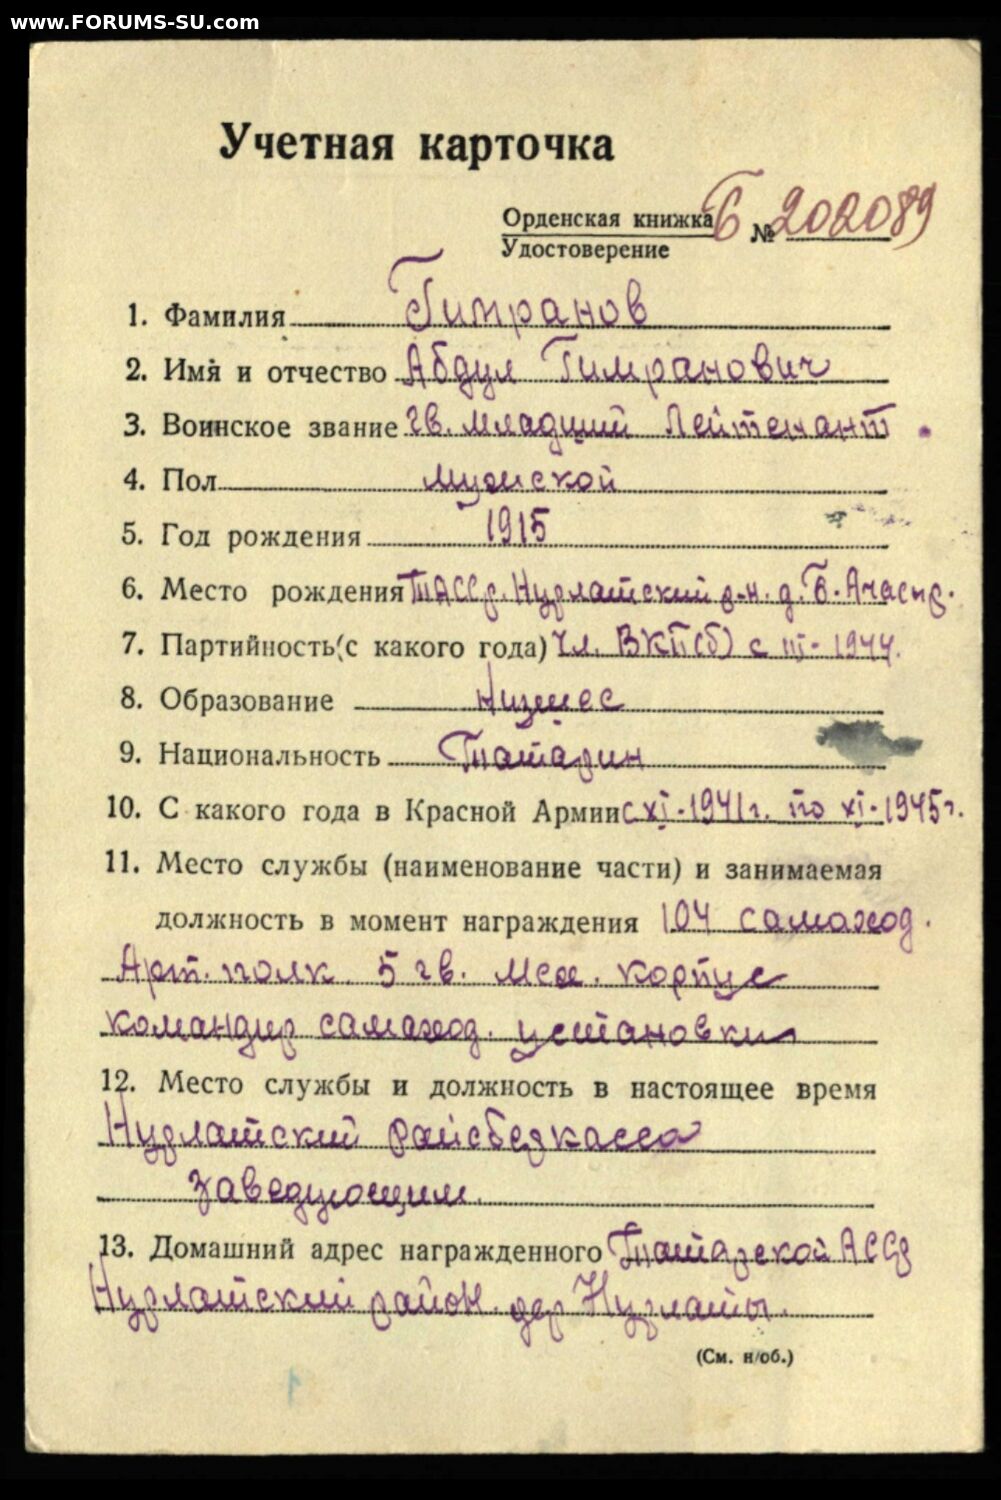 www.FORUMS-SU.com
Учетная карточка
Орденская книжка Б № 202089
Удостоверение
1. Фамилия Гимранов
2. Имя и отчество Абдул Гимранович
3. Воинское звание гв. младший Лейтенант
4. Пол мужской
5. Год рождения 1915
6. Место рождения ТАССр. Нурлатский р-н. д. Б. Ачасыр.
7. Партийность (с какого года) Чл. ВКП(б) с III - 1944.
8. Образование Низшее
9. Национальность Татарин
10. С какого года в Красной Армии с XI-1941г. по XI-1945г.
11. Место службы (наименование части) и занимаемая
должность в момент награждения 104 самоход.
Арт. полк. 5 гв. Мех. корпус
командир самоход. установки
12. Место службы и должность в настоящее время
Нурлатский
Заведующим.
13. Домашний адрес награжденного Татарской АССр
Нурлатский район. дер Нурлаты.
(См. н/об.)
1